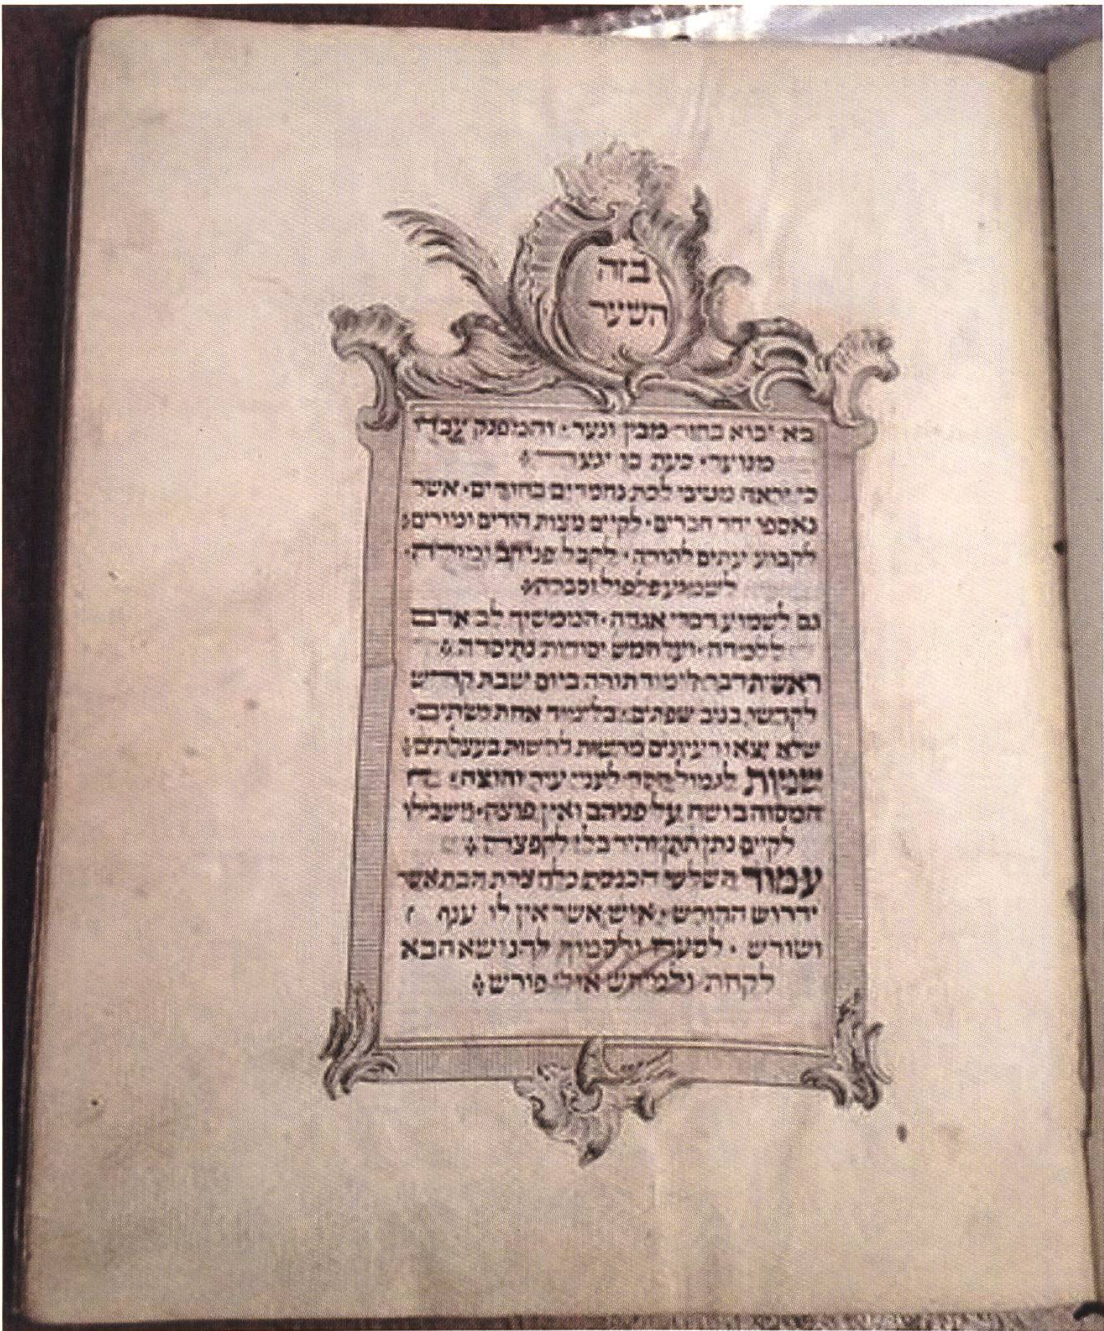 בזה
השער
בא יבוא בחור מבין ונער · והמפנק עבדו
מנוער · כעת בו ינער
כי יראה מטיבי לכת נחמדים בחורים · אשר
נאספו יחד חברים · לקיים מצות הורים ומורים
לקבוע עיתים לתורה · לקבל פני
לשמוע פלפול וסברה
גם לשמוע דברי אגדה · הממשיך לב אדם
ללמדה · ועל חמש יסודות נתיסדה
ראשית דבר לימוד תורה ביום שבת קדש
לקדשו בניב שפתים · בלימוד אחת משתים ·
שלא יצאו רעיונים מרשות לרשות בעצלתים
שנית לגמול חסד לעניי עיר וחוצה ·
המסוה בושה על פניהם ואין פוצה ·
לקיים נתן תתן
עמוד השלישי הכנסת כלה
ידרוש · איש אשר אין לו ענף
ושורש · לסעדו ולסמוך להנושא הבא
לקחת · פורש